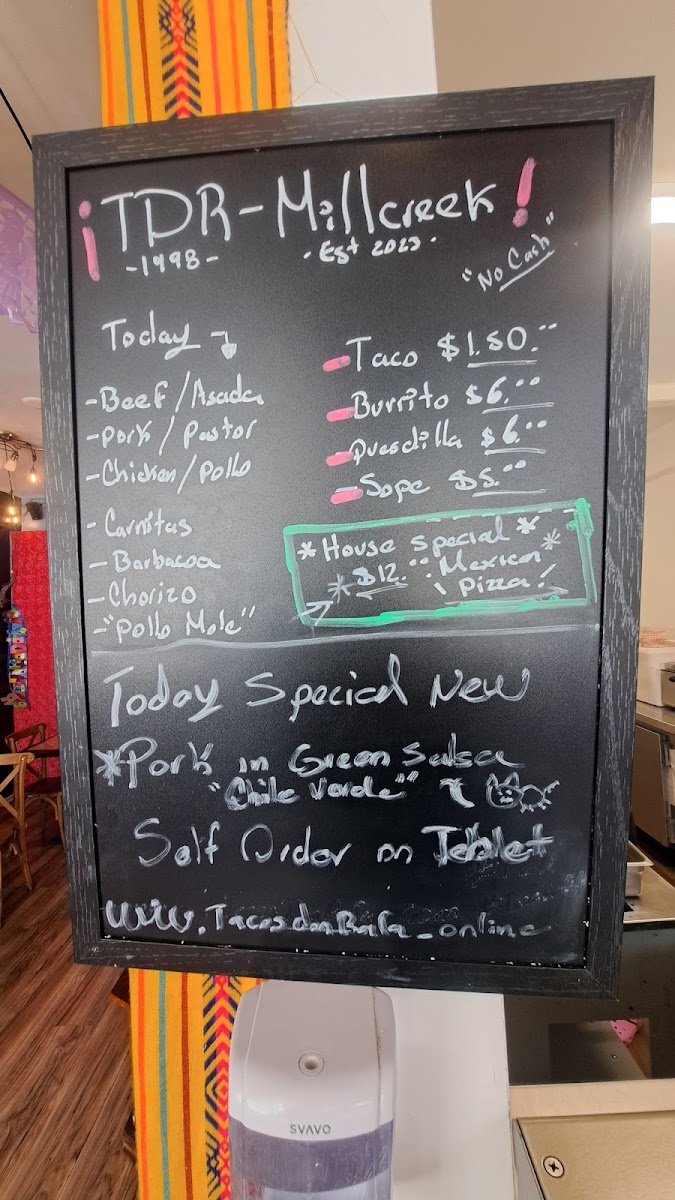 ¡TDR-Millcreek!
-1998-
·Est 2023·
"No Cash"
Today
-Beef/Asada
-Pork/Pastor
-Chicken/Pollo
-Carnitas
-Barbacoa
-Chorizo
-"Pollo Mole"
-Taco $1.50.00
-Burrito $6.00
-Quesdilla $6.00
-Sope $5.00
*House special*
*$12.00 Mexican*
Pizza!
Today Special New
*Pork in Green Salsa
"Chile Verde"
Self Order on Tablet
www.TacosdonRafa_online
SVAVO